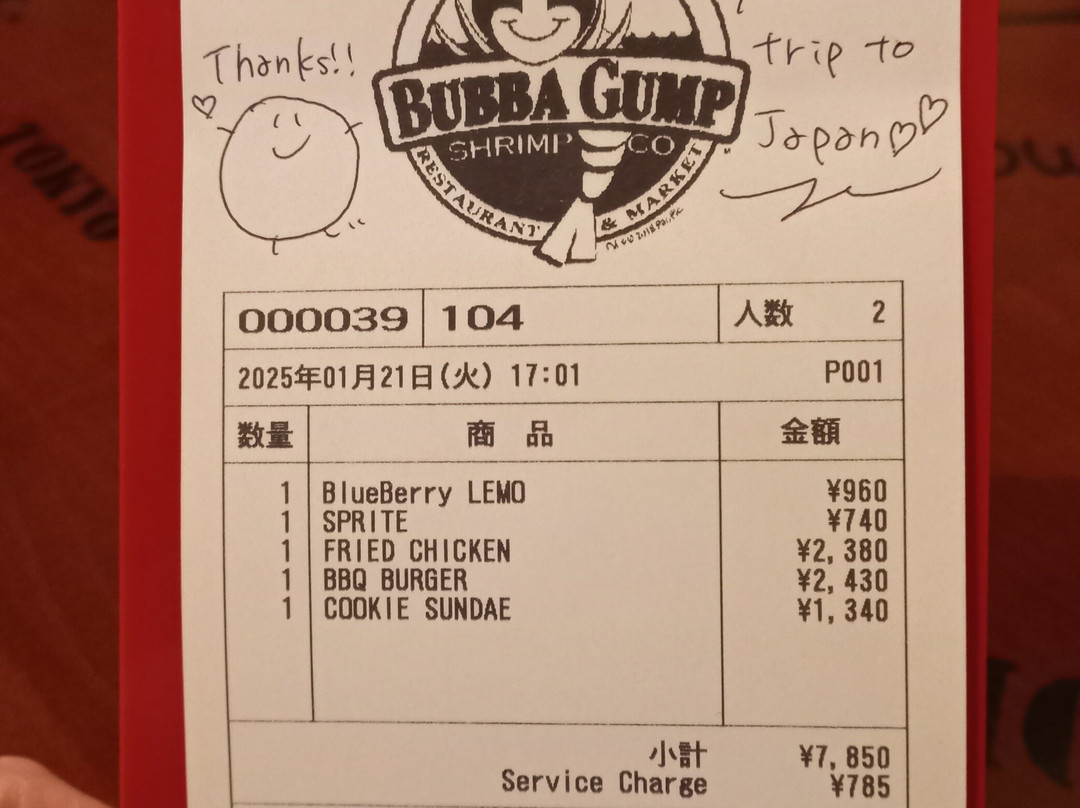 Thanks!!
trip to
Japan
BUBBA GUMP
SHRIMP CO
RESTAURANT & MARKET
TOKYO
000039 104 人数 2
2025年01月21日(火) 17:01 P001
数量 商 品 金額
1 BlueBerry LEMO ¥960
1 SPRITE ¥740
1 FRIED CHICKEN ¥2,380
1 BBQ BURGER ¥2,430
1 COOKIE SUNDAE ¥1,340
小計 ¥7,850
Service Charge ¥785